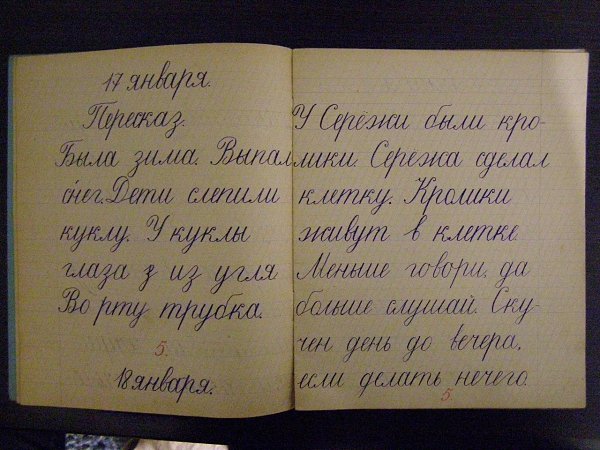 17 января.
Пересказ.
Была зима. Выпал
снег. Дети слепили
куклу. У куклы
глаза з из угля
Во рту трубка.
5.
18 января.
У Серёжи были кро-
лики. Серёжа сделал
клетку. Кролики
живут в клетке.
Меньше говори, да
больше слушай. Ску-
чен день до вечера,
если делать нечего.
5.